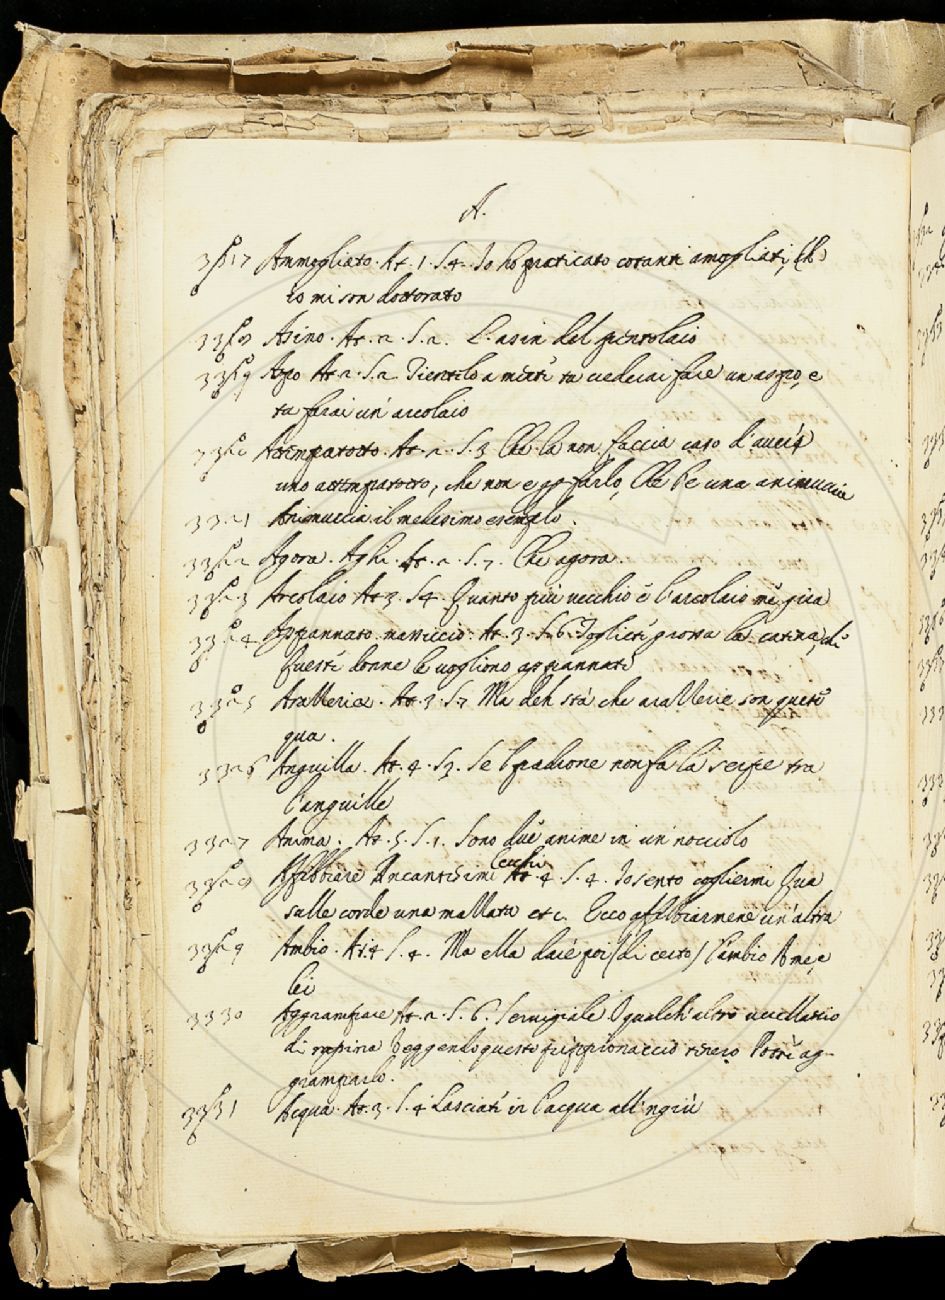 A.
3317 Ammogliato. At. 1. S. 4. Io ho praticato cotanti amogliati, Ch
io mi son dottorato
3318 Asino. At. 2. S. 2. L'asin del pentolaio
3319 Aspo At. 2. S. 2. tu vedrai fare un aspo, e
tu farai un' arcolaio
3320 Attempatotto. At. 2. S. 3 Che la non faccia caso d'
uno attempatotto, che non e Che l'e una animuccia
3321 Animuccia il medesimo esemplo.
3322 Agora. Aghi. At. 2. S. 7. Che agora.
3323 Arcolaio At. 3. S. 4. Quanto piu vecchio è l'arcolaio me' gira
3324 Appannato. massiccio. At. 3. S. 6. grossa la
queste donne le vogliono appannate
3325 Aralleria. At. 3. S. 7 Ma deh stà che son queste
qua.
3326 Anguilla. At. 4. S. 3. Se 'l padrone non fa la serpe tra
l'anguille
3327 Anima. At. 5. S. 1. Sono due anime in un' nocciolo
3328 Affibbiare At. 4. S. 4. Io sento cogliermi Qua
sulle corde una mallata etc. Ecco affibbiarmene un' altra
3329 Ambio. At. 4 S. 4. Ma ella darà poi (di certo) l'ambio A me, e
lei
3330 Aggrampare At. 2. S. 6. Serviziale O qualch' altro uccellaccio
di rapina Veggendo questo pippionaccio tenero Potrì ag-
gramparlo.
3331 Acqua. At. 3. S. 4 Lasciate ir l'acqua all' ngiù